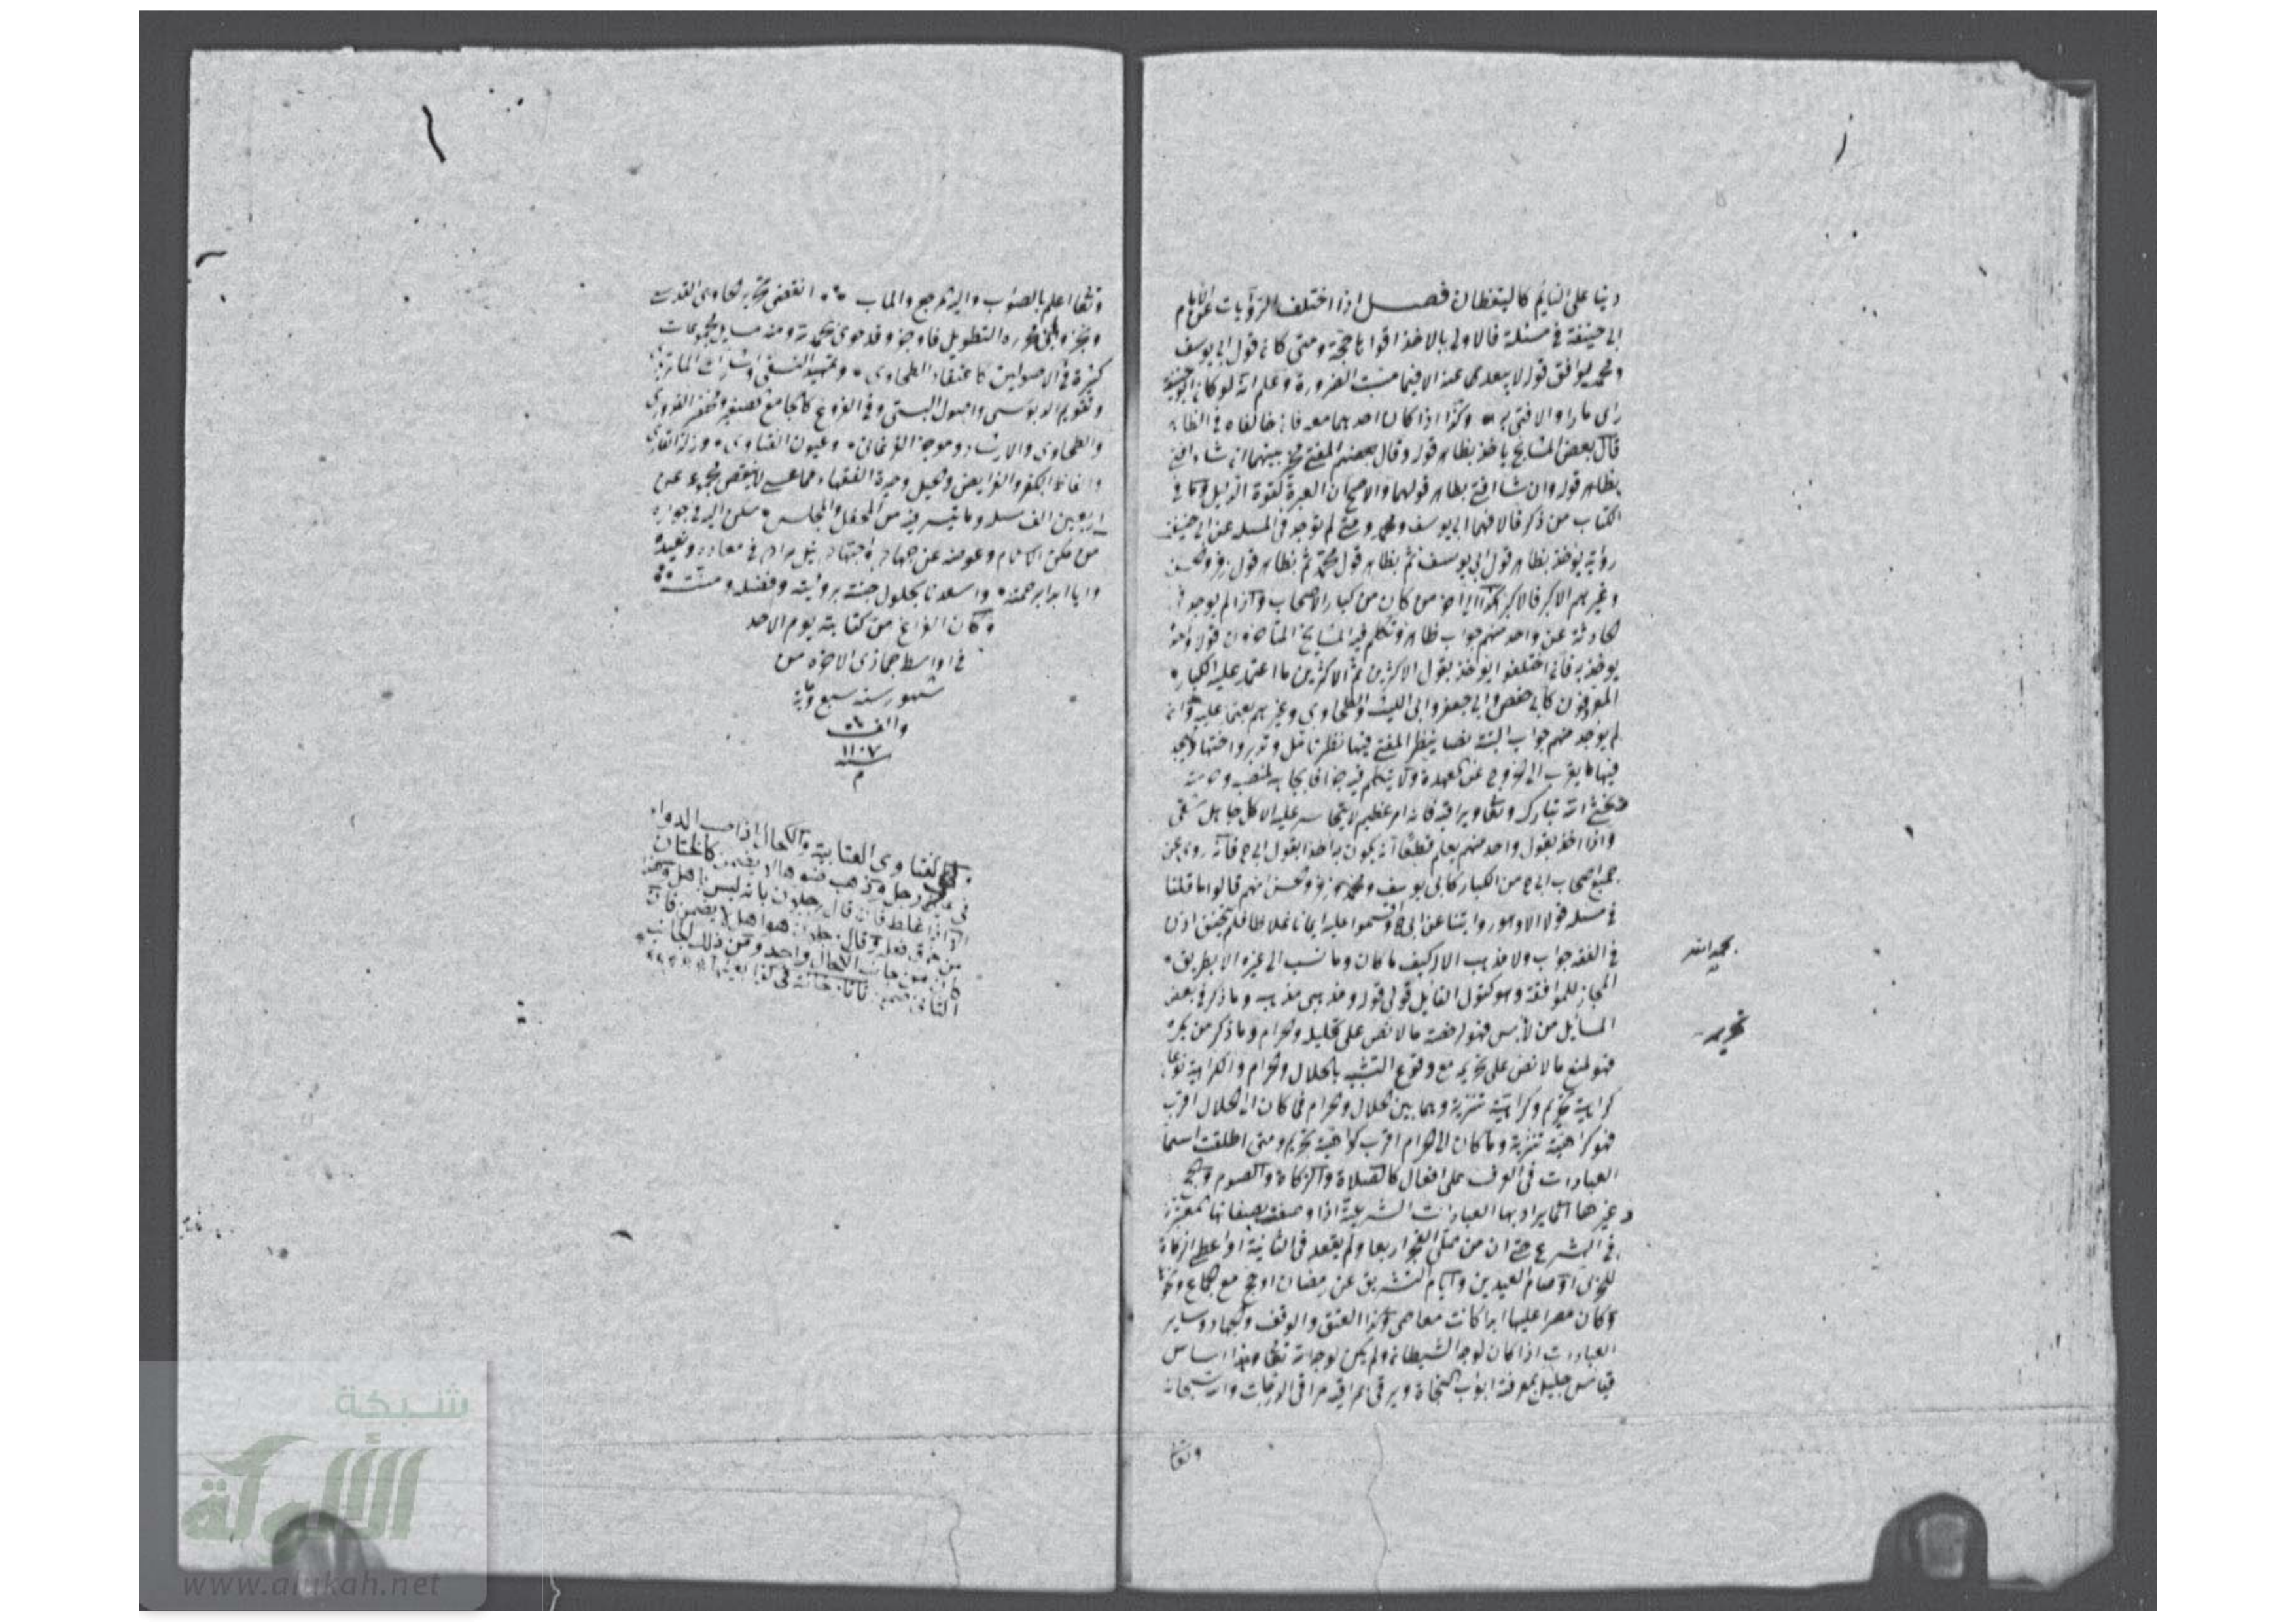 دينا على النايم كاليقظان فصل اذا اختلف الروايات عن الامام
ابى حنيفة فى مسئلة فالاولى بالاخذ اقواها حجة ومتى كان قول ابى يوسف
ومحمد يوافق قوله لا يتعدى عنه الا فيما مست الضرورة وعلم انه لو كان ابو حنيفة
راى ما راوا لافتى به وكذا اذا كان احدهما معه فان خالفاه فى الظاهر
قال بعض المشايخ ياخذ بظاهر قوله وقال بعضهم المفتى مخير بينهما ان شاء افتى
بظاهر قوله وان شا افتى بظاهر قولهما والاصح ان العبرة لقوة الدليل
الكتاب من ذكر قالا فهما ابى يوسف ومحمد ومتى لم يوجد فى المسله عن ابى حنيفة
رواية يوخذ بظاهر قول ابى يوسف ثم بظاهر قول محمد ثم بظاهر قول زفر والحسن
وغيرهم الاكبر فالاكبر هكذا الى اخر من كان من كبار الاصحاب واذا لم يوجد فى
الحادثة عن واحد منهم جواب ظاهر وتكلم فيه المشايخ المتاخرون قولا واحدا
يوخذ به فان اختلفوا يوخذ بقول الاكثرين ثم الاكثرين مما اعتمد عليه الكبار
المعروفون كابى حفص وابى جعفر وابى الليث والطحاوى وغيرهم يعتمد عليه وان
لم يوجد منهم جواب البتة نصا ينظر المفتى فيها نظر تامل وتدبر واجتهاد ليجد
فيها ما يقرب الى الخروج عن العهدة ولا يتكلم فيه جزافا
فليخش الله تبارك وتعالى ويراقبه فانه امر عظيم لا يتجاسر عليه الا كل جاهل شقى
واذا اخذ بقول واحد منهم يعلم قطعا انه يكون به اخذا بقول ابى ح فانه روى عن
جميع اصحاب ابى ح من الكبار كابى يوسف ومحمد وزفر والحسن انهم قالوا ما قلنا
فى مسله قولا الا وهو روايتنا عن ابى ح واقسموا عليه ايمانا غلاظا فلم يتحقق اذن
فى الفقه جواب ولا مذهب الا له كيف ما كان وما نسب الى غيره الا بطريق
المجاز للموافقة وهو كقول القايل قولى قوله ومذهبى مذهبه وما ذكر فى بعض
المسايل من لا باس فهو رخصة ما لا نص على تحليله وحرام وما ذكر من يكره
فهو لمنع ما لا نص على تحريمه مع وقوع التشبه بالحلال والحرام والكراهية نوعان
كراهية تحريم وكراهية تنزيه وهما بين الحلال والحرام فما كان الى الحلال اقرب
فهو كراهية تنزيه وما كان الى الحرام اقرب كراهية تحريم ومتى اطلقت اسما
العبادات فى العرف على افعال كالصلاة والزكاة والصوم والحج
وغيرها انما يراد بها العبادات الشرعية اذا وصفت بصفاتها المعتبرة
فى الشرع حتى ان من صلى الفجر اربعا ولم يقعد فى الثانية او اعطى الزكاة
للغنى او صام العيدين وايام التشريق عن رمضان او حج مع الجماع ونحوه
وكان مصرا عليها ابدا كانت معاصى وكذا العتق والوقف والجهاد وساير
العبادات اذا كان لوجه الشيطان ولم يكن لوجه الله تعالى فهذا اساس
قياس جليل بمعرفته ابواب النجاة ويرقى مراقيه مراقى الدرجات والله سبحانه
وتعا
بحمد الله
تحريمه
وتعالى اعلم بالصواب واليه المرجع والماب انقضى تحرير الحاوى القدسى
التطويل فاوجز وقد حوى بحمد الله ومنه مسايل مجموعات
كثيرة فى الاصولين كاعتقاد الطحاوى وتمهيد النسفى واشارات الماتريدى
وتقويم الدبوسى واصول البستى وفى الفروع كالجامع الصغير ومختصر القدورى
والطحاوى والارشاد وموجز الفرغانى وعيون الفتاوى وزلة القارى
والفاظ الكفر والفرايض والحيل وحيرة الفقهاء مما عسى لا ينقص مجموعه عن
اربعين الف مسله وما تيسر فيه من المحفل والمجلس
وعوضه عن جهاده واجتهاده نيل مرامه فى معاده وتغمده
وايانا ابدا برحمته واسعدنا بحلول جنته برويته وفضله ومنته
وكان الفراغ من كتابته يوم الاحد
فى اواسط جمادى الاخره من
شهور سنة سبع ومائة
والف
١١٠٧
م
وفى الفتاوى العتابية والكحال اذا صب الدواء
فى عين رجل فذهب ضوءها لا يضمن كالختان
الا اذا غلط فان قال رجلان بانه ليس باهل
من خرق فعله وقال رجلان هو اهل لا يضمن فان
كان من جانب الكحال واحد ومن ذلك الجانب
اثنان ضمن تاتارخانية
شبكة
الألوكة
www.alukah.net